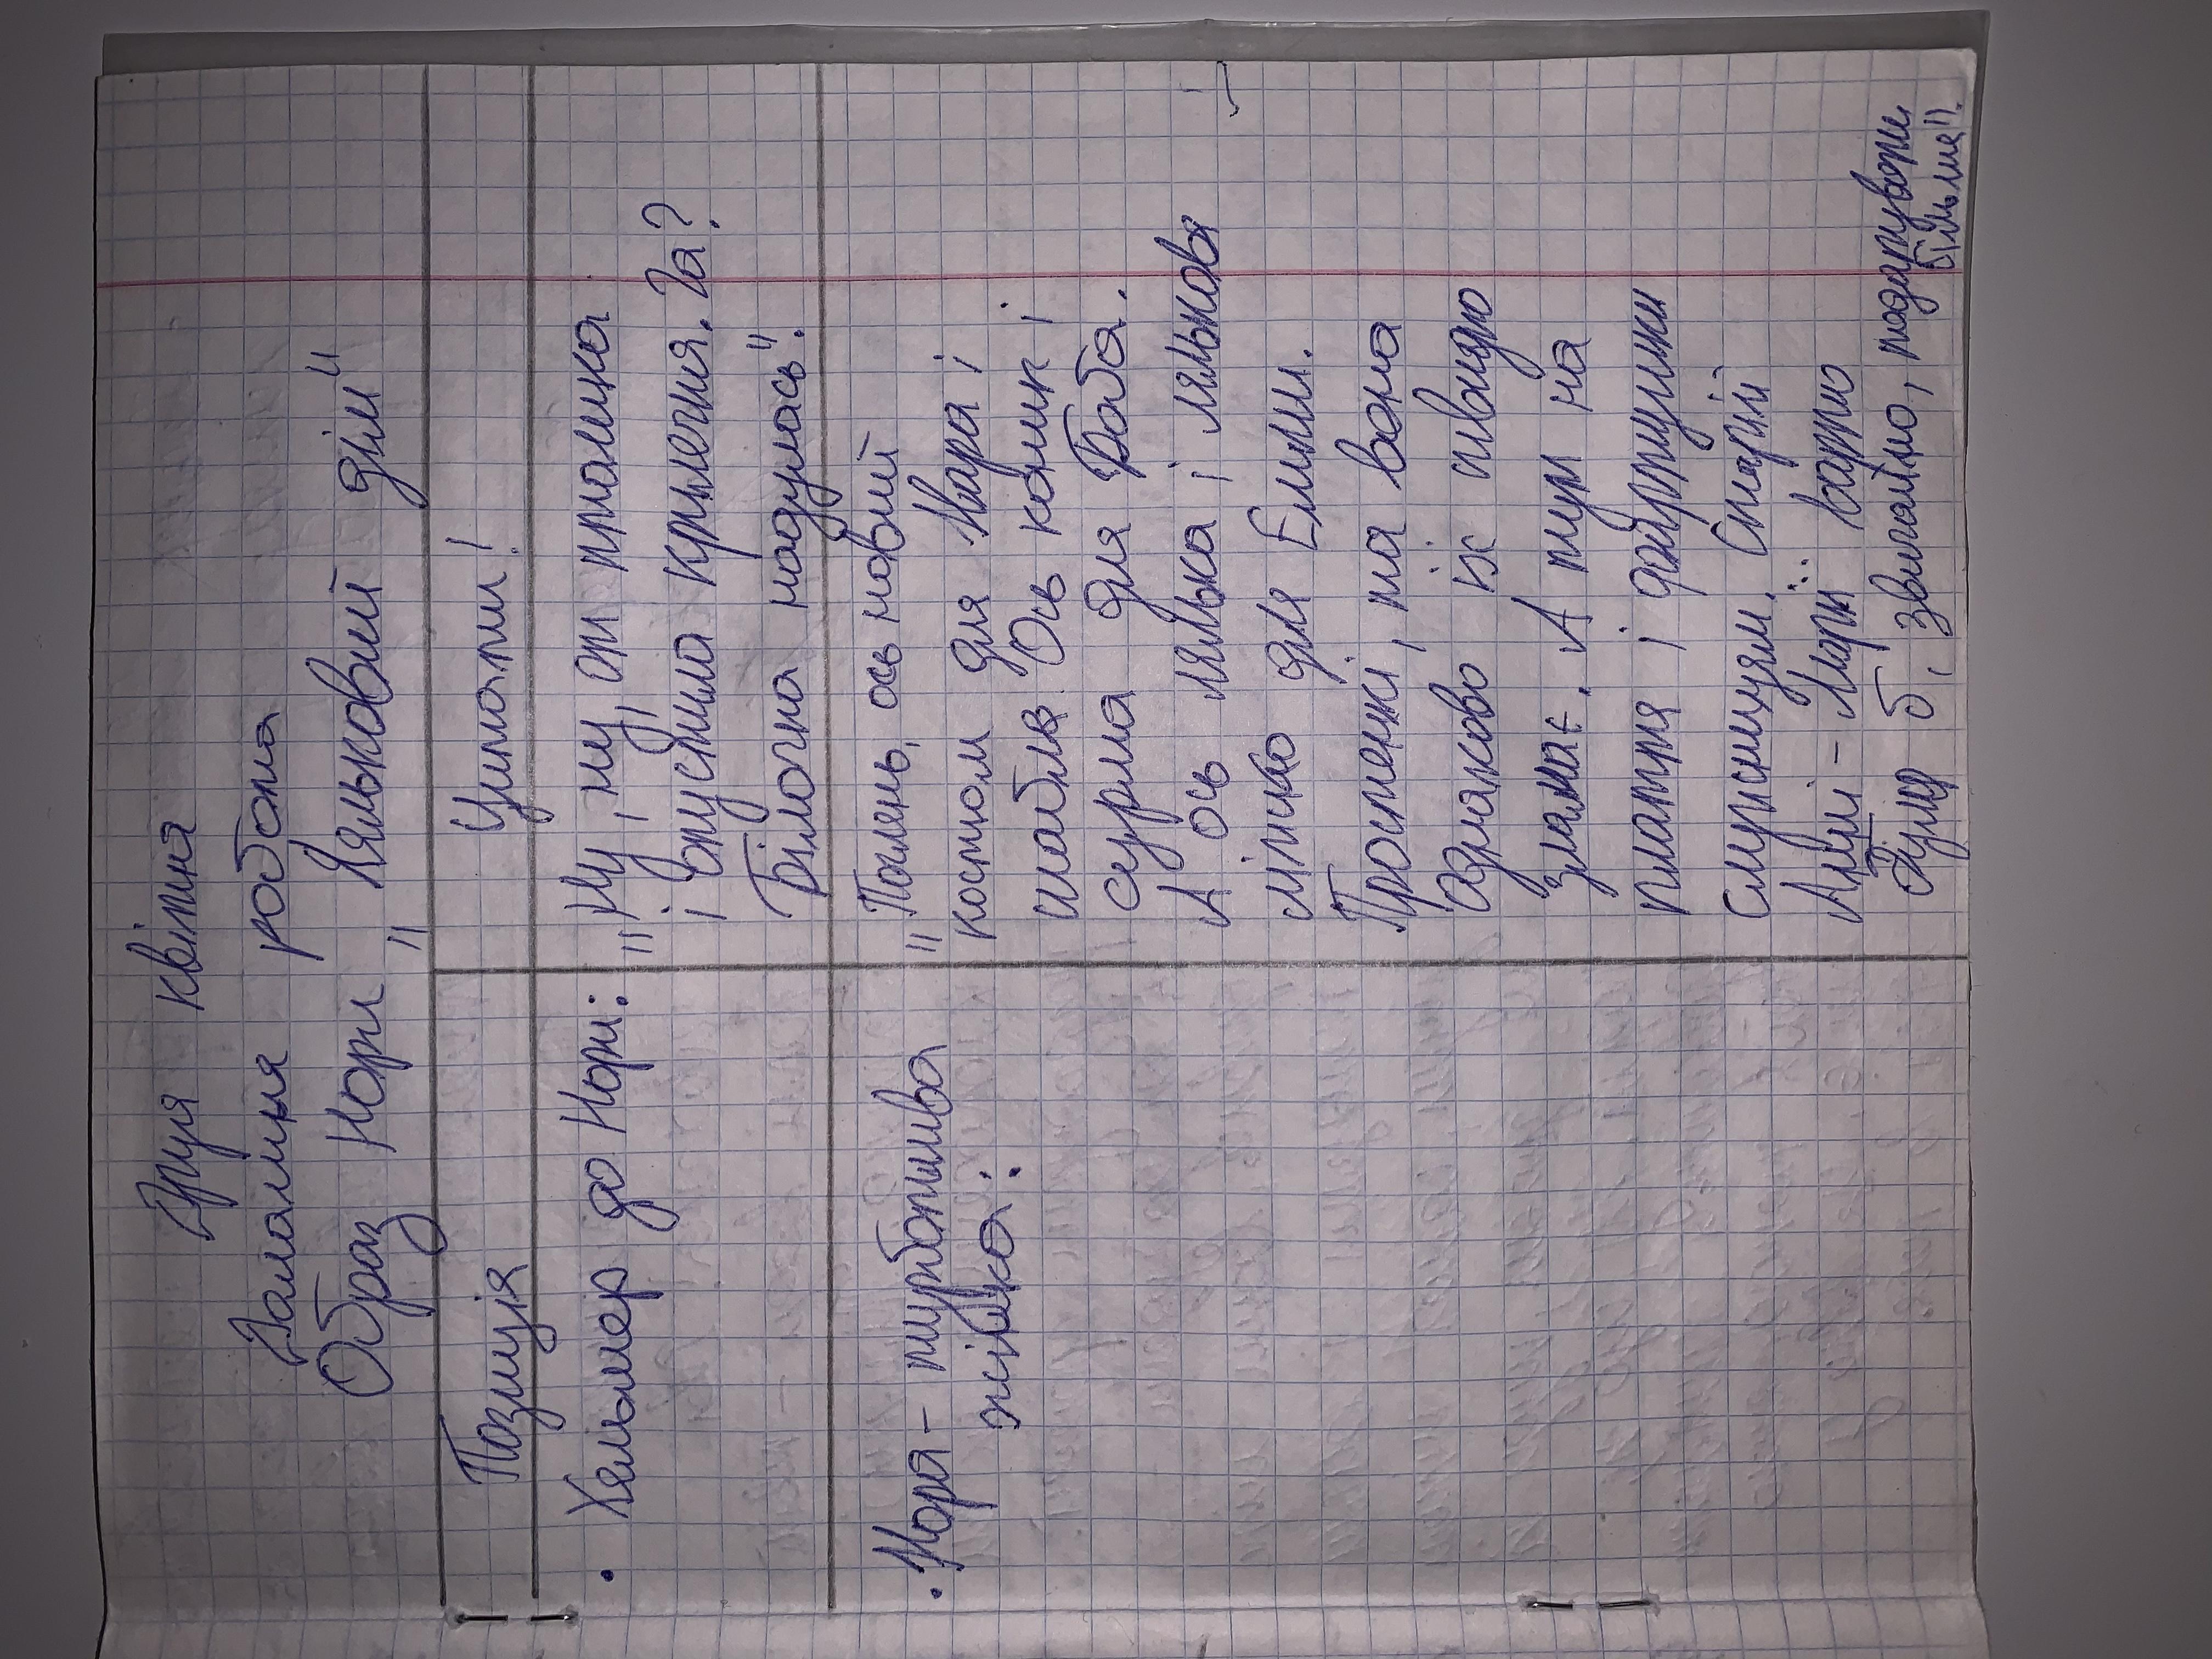 Друге квітня
Домашня робота
Образ Нори „Ляльковий дім"
Позиція
Цитати!
• Хельмер до Нори:
„Ну, ну, от пташка
і опустила крильця. Га?
Білочка надулась".
• Нора - турботлива
жінка:
„Поглянь, ось новий
костюм для Івара і
шабля. Ось коник і
сурма для Боба.
А ось лялька і лялькове
ліжко для Емми.
Простенькі, та вона
однаково їх швидко
зламає. А тут на
плаття і фартушки
служницям. Старій
Анні-Марії варто
було б, звичайно, подарувати
більше".